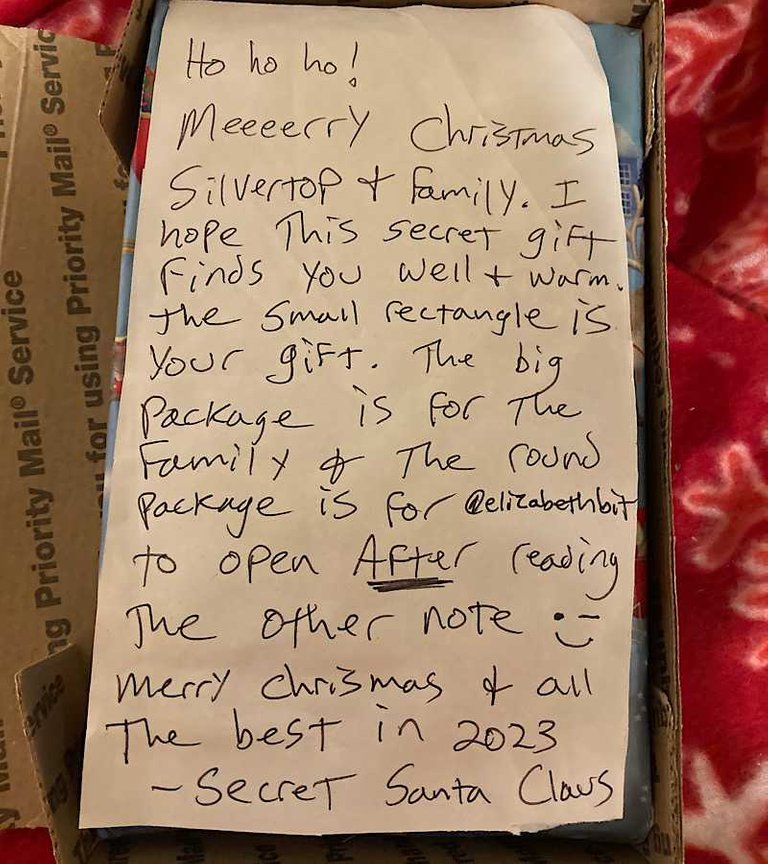 Ho ho ho!
Meeeerry Christmas
Silvertop & family. I
hope This secret gift
finds you well & warm.
the small rectangle is
your gift. The big
package is for The
Family & The round
package is for @elizabethbit
to open After reading
The other note :)
Merry Chrismas & all
The best in 2023
- Secret Santa Claus
g Priority Mail® Service
for using Priority Mail® Servic